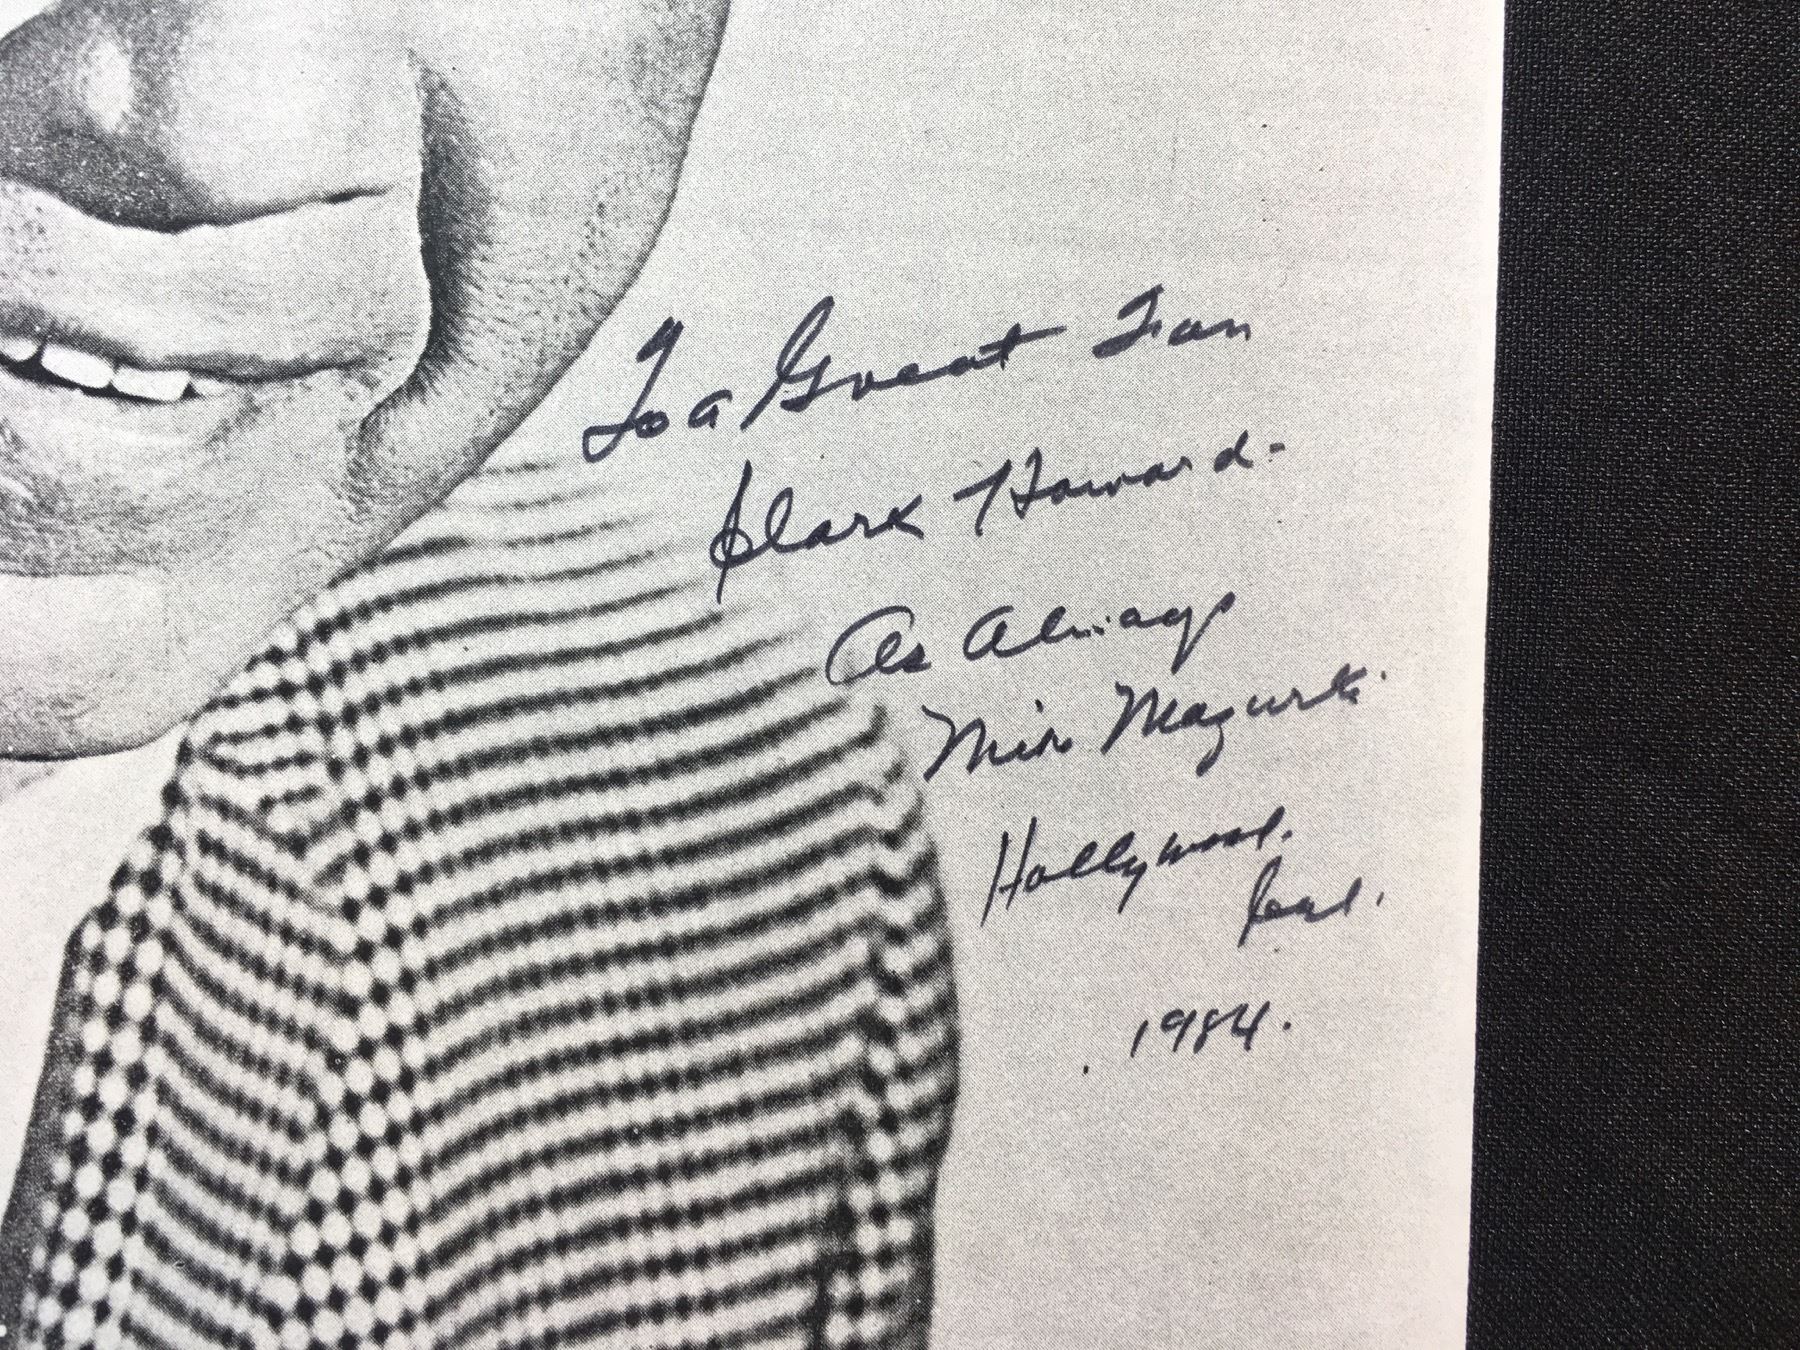 To a Great Fan
Clark Howard.
As Always
Mike Mazurki
Hollywood.
Cal.
1984.